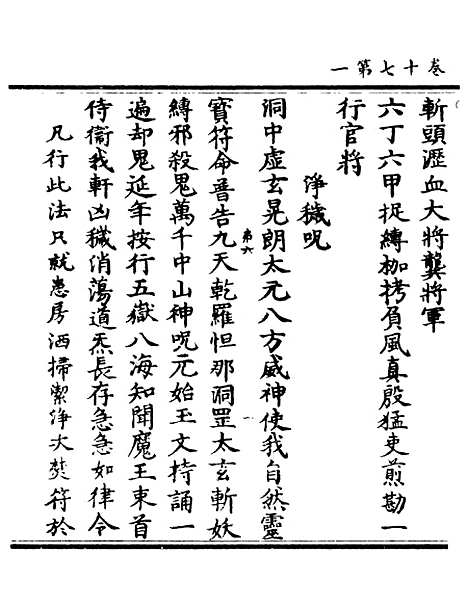 卷十七第一
斬頭瀝血大將龔將軍
六丁六甲捉縛枷栲負風真殷猛吏煎勘一
行官將
淨穢呪
洞中虛玄晃朗太元八方威神使我自然靈
寶符命普告九天乾羅怛那洞罡太玄斬妖
弟六
縛邪殺鬼萬千中山神呪元始玉文持誦一
遍却鬼延年按行五嶽八海知聞魔王束首
侍衞我軒凶穢消蕩道炁長存急急如律令
凡行此法只就患房洒掃潔淨大焚符於